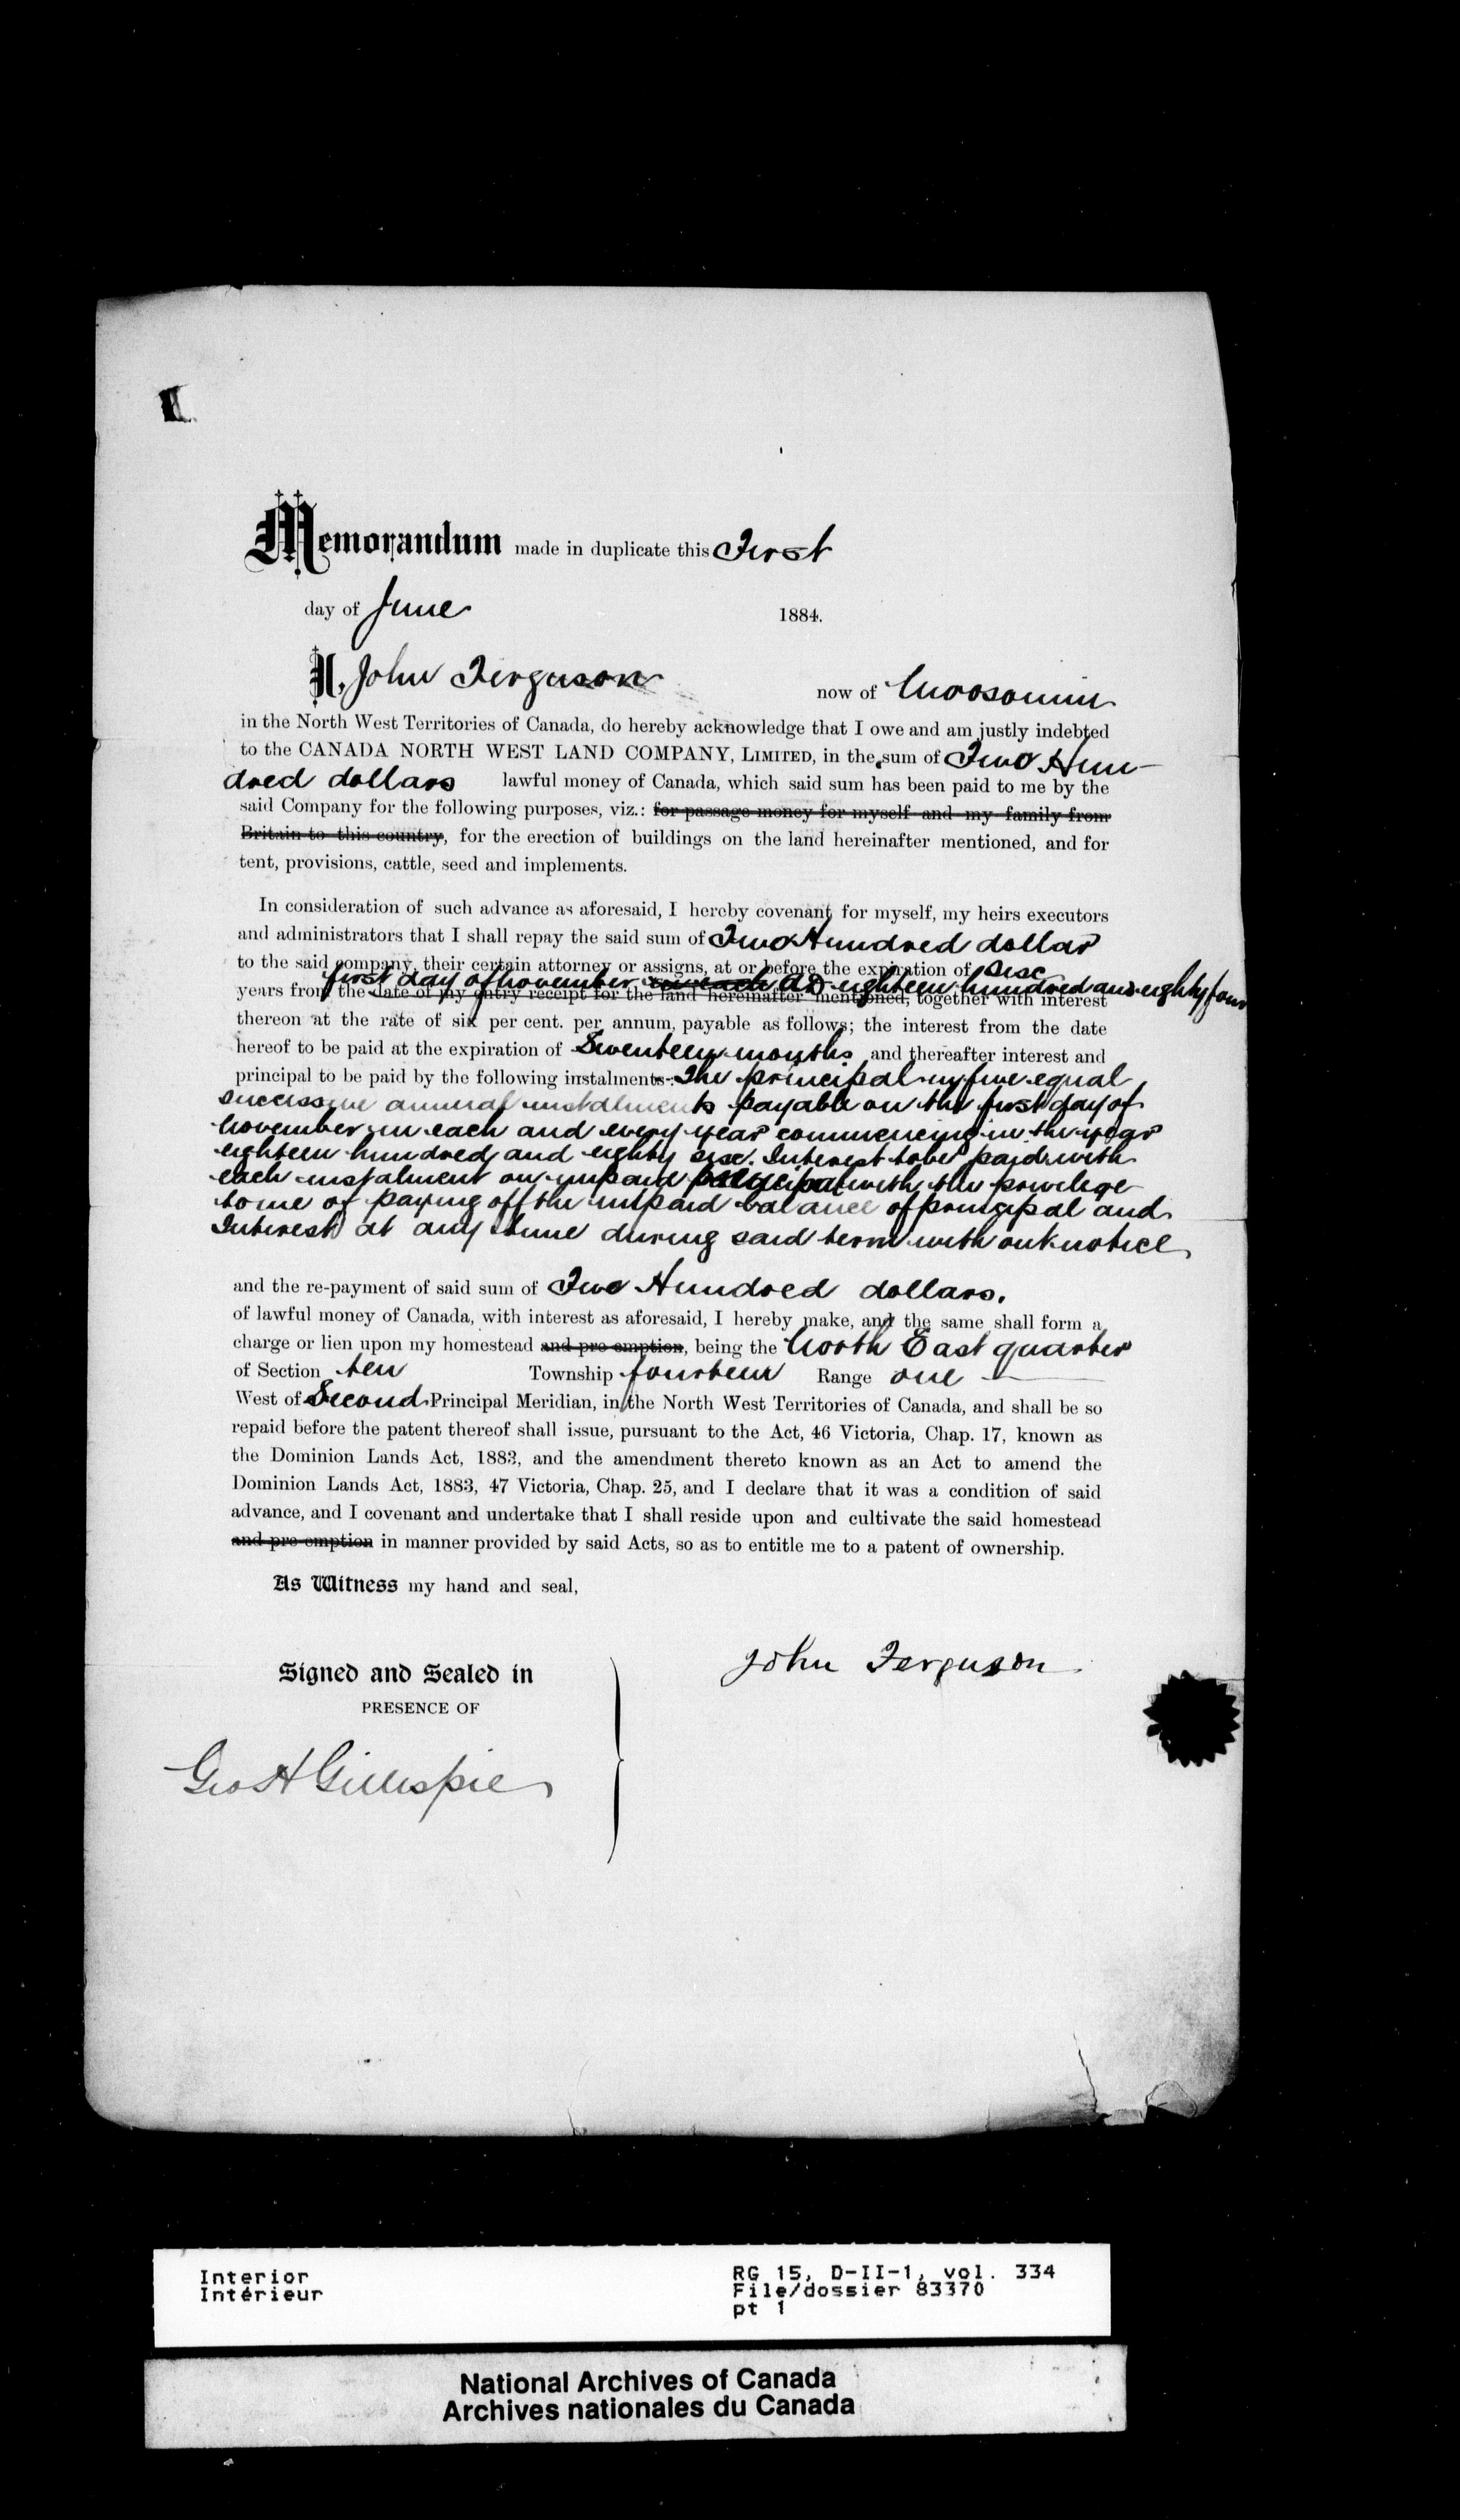 Memorandum made in duplicate this First
day of June 1884.
I, John Ferguson now of Moosomin
in the North West Territories of Canada, do hereby acknowledge that I owe and am justly indebted
to the CANADA NORTH WEST LAND COMPANY, LIMITED, in the sum of Two Hun-
dred dollars lawful money of Canada, which said sum has been paid to me by the
said Company for the following purposes, viz.: for passage money for myself and my family from
Britain to this country, for the erection of buildings on the land hereinafter mentioned, and for
tent, provisions, cattle, seed and implements.
In consideration of such advance as aforesaid, I hereby covenant for myself, my heirs executors
and administrators that I shall repay the said sum of Two Hundred dollars
to the said company, their certain attorney or assigns, at or before the expiration of six
first day of november in each AD eighteen hundred and eighty four
years from the date of my entry receipt for the land hereinafter mentioned, together with interest
thereon at the rate of six per cent. per annum, payable as follows; the interest from the date
hereof to be paid at the expiration of Seventeen months and thereafter interest and
principal to be paid by the following instalments:- The principal in five equal
successive annual instalments payable on the first day of
November in each and every year commencing in the year
eighteen hundred and eighty six. Interest to be paid with
each instalment on unpaid principal with the privilege
to me of paying off the unpaid balance of principal and
Interest at any time during said term without notice
and the re-payment of said sum of Two Hundred dollars.
of lawful money of Canada, with interest as aforesaid, I hereby make, and the same shall form a
charge or lien upon my homestead and pre-emption, being the North East quarter
of Section ten Township fourteen Range one
West of Second Principal Meridian, in the North West Territories of Canada, and shall be so
repaid before the patent thereof shall issue, pursuant to the Act, 46 Victoria, Chap. 17, known as
the Dominion Lands Act, 1883, and the amendment thereto known as an Act to amend the
Dominion Lands Act, 1883, 47 Victoria, Chap. 25, and I declare that it was a condition of said
advance, and I covenant and undertake that I shall reside upon and cultivate the said homestead
and pre-emption in manner provided by said Acts, so as to entitle me to a patent of ownership.
As Witness my hand and seal,
John Ferguson
Signed and Sealed in
PRESENCE OF
Geo H Gillespie
Interior
Intérieur
RG 15, D-II-1, vol. 334
File/dossier 83370
pt 1
National Archives of Canada
Archives nationales du Canada